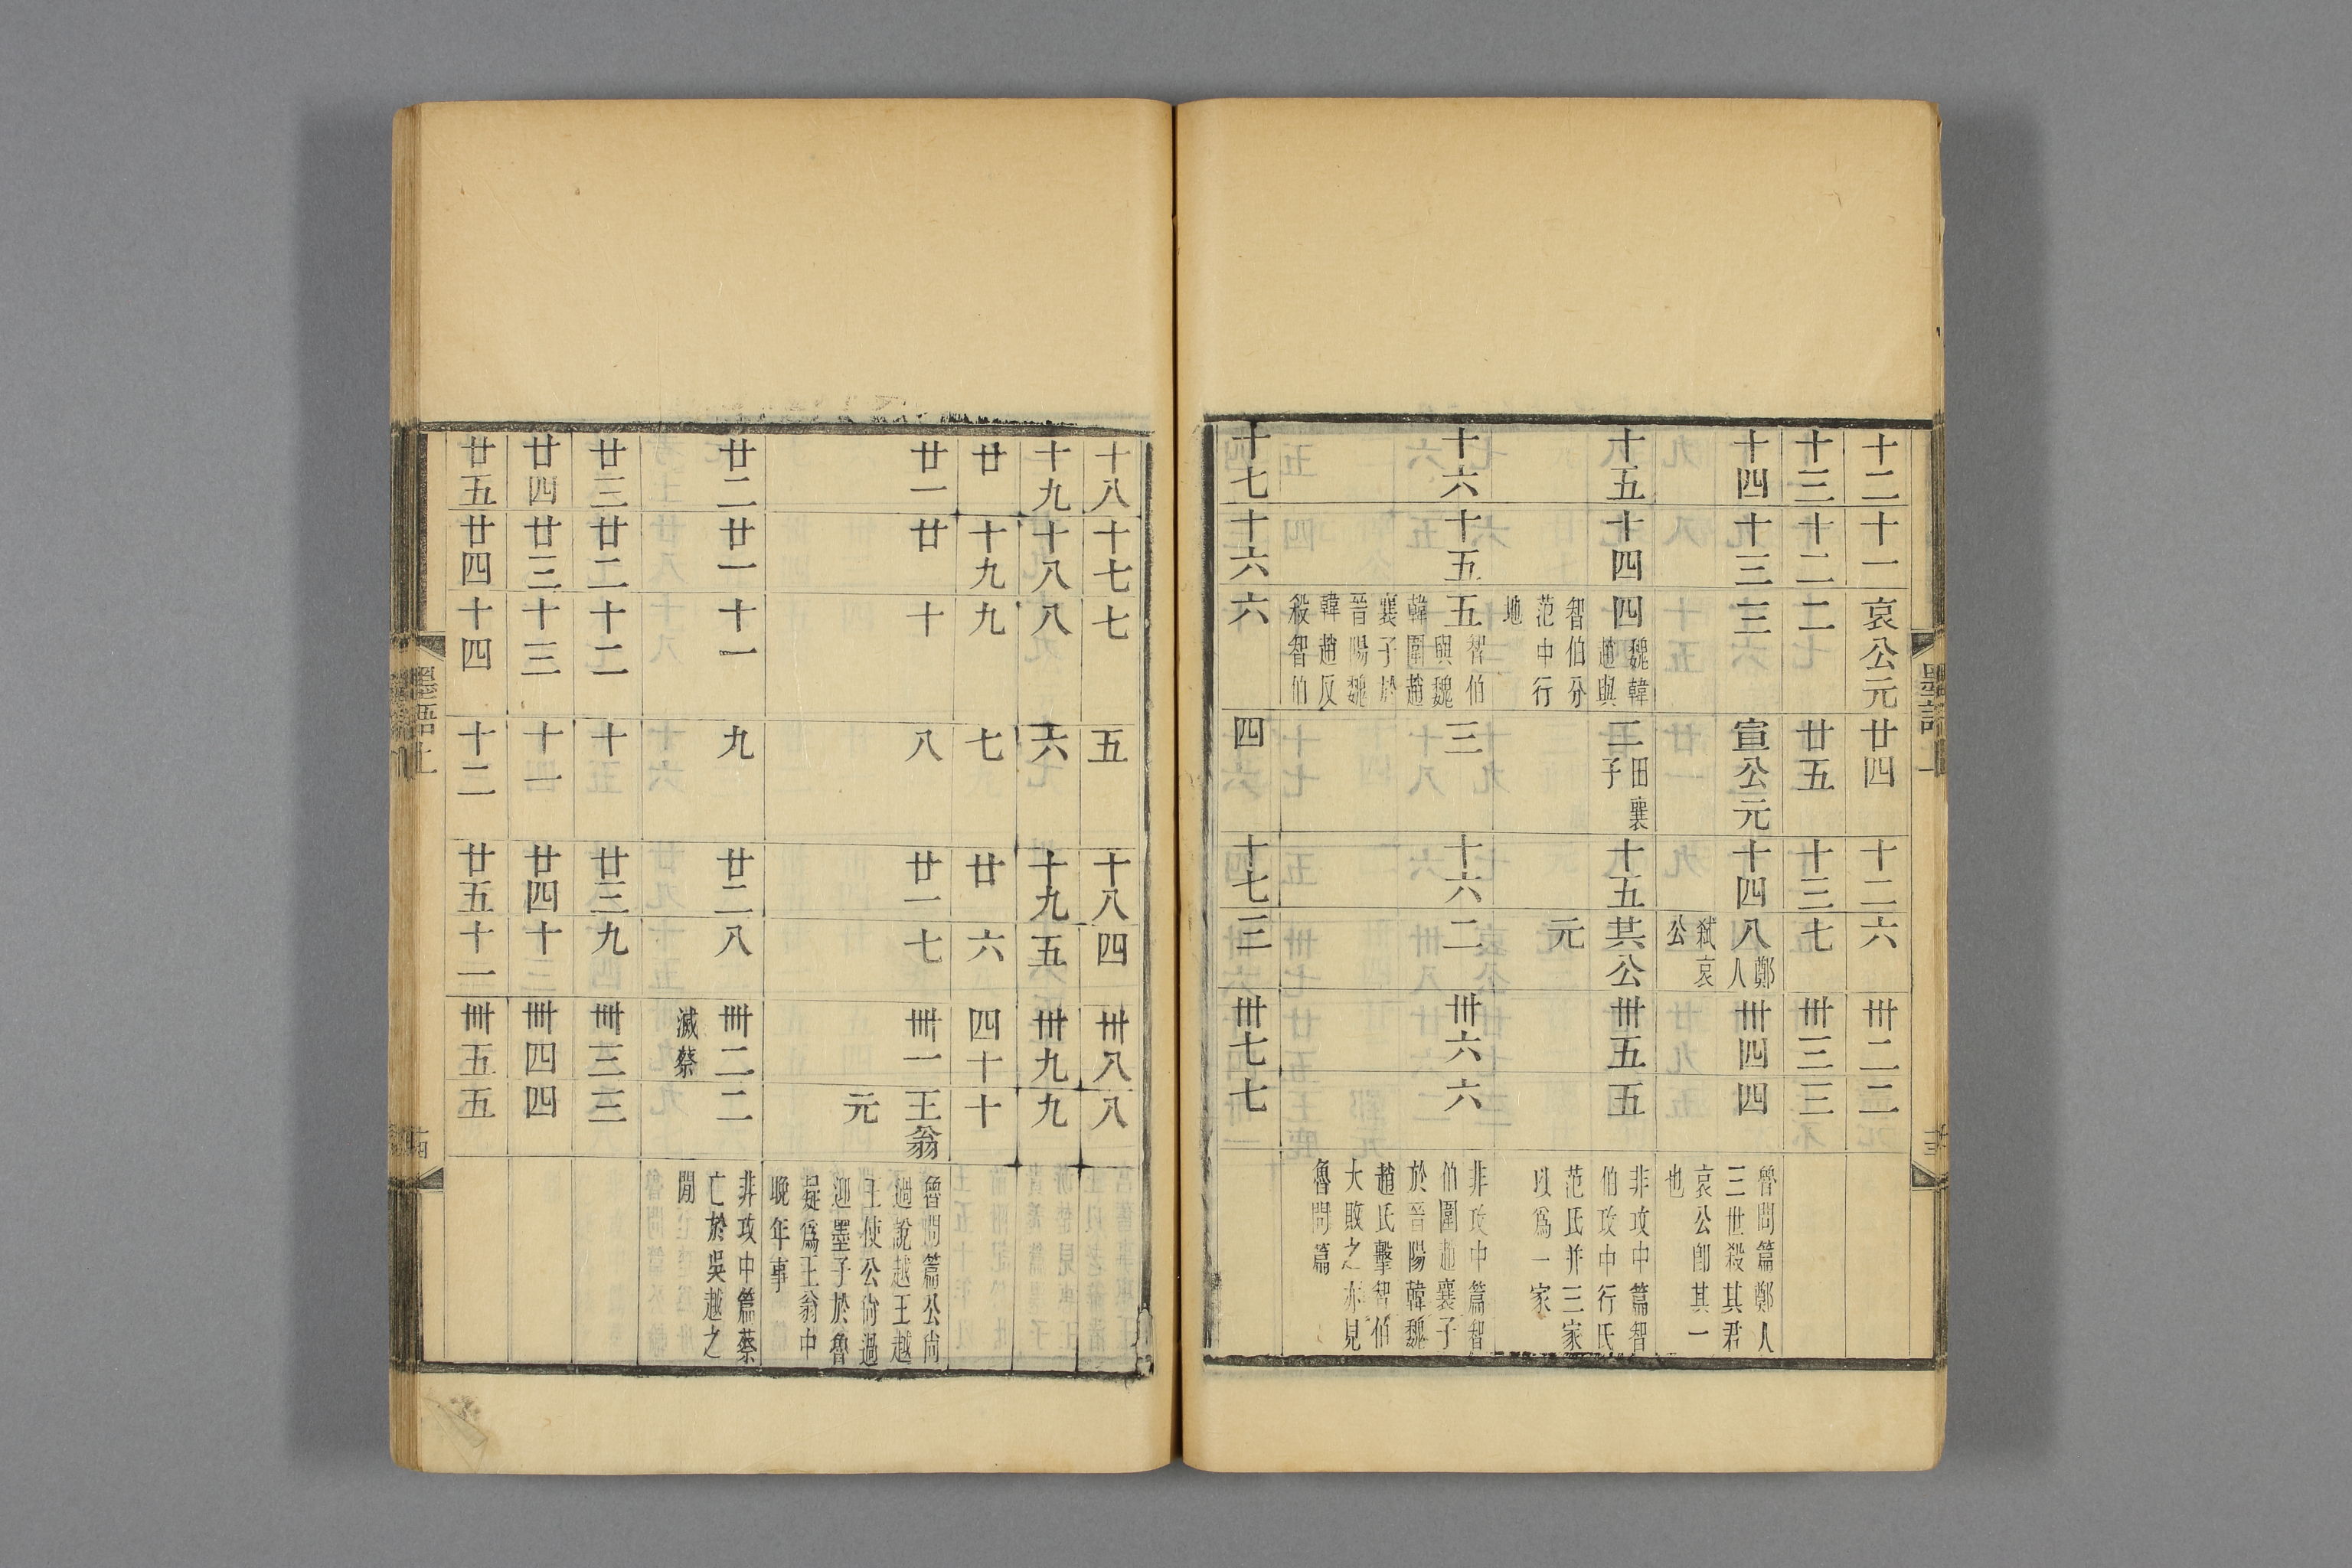 十二 十一 哀公元 廿四 十二 六 卅二 二
十三 十二 二 廿五 十三 七 卅三 三
十四 十三 三 宣公元 十四 八 鄭人
弒哀
公
卅四 四
魯問篇鄭人
三世殺其君
哀公卽其一
也
十五 十四 四 魏韓
趙與
智伯分
范中行
地
二 田襄
子
十五 共公
元
卅五 五
非攻中篇智
伯攻中行氏
范氏并三家
以爲一家
十六 十五 五 智伯
與魏
韓圍趙
襄子於
晉陽魏
韓趙反
殺智伯
三 十六 二 卅六 六
非攻中篇智
伯圍趙襄子
於晉陽韓魏
趙氏擊智伯
大敗之亦見
魯問篇
十七 十六 六 四 十七 三 卅七 七
十八 十七 七 五 十八 四 卅八 八
十九 十八 八 六 十九 五 卅九 九
廿 十九 九 七 廿 六 四十 十
廿一 廿 十 八 廿一 七 卌一 王翁
元
魯問篇公尚
過說越王越
王使公尚過
迎墨子於魯
疑爲王翁中
晚年事
廿二 廿一 十一 九 廿二 八 卌二
滅蔡
二
非攻中篇蔡
亡於吳越之
閒
廿三 廿二 十二 十 廿三 九 卌三 三
廿四 廿三 十三 十一 廿四 十 卌四 四
廿五 廿四 十四 十二 廿五 十一 卌五 五
墨語上